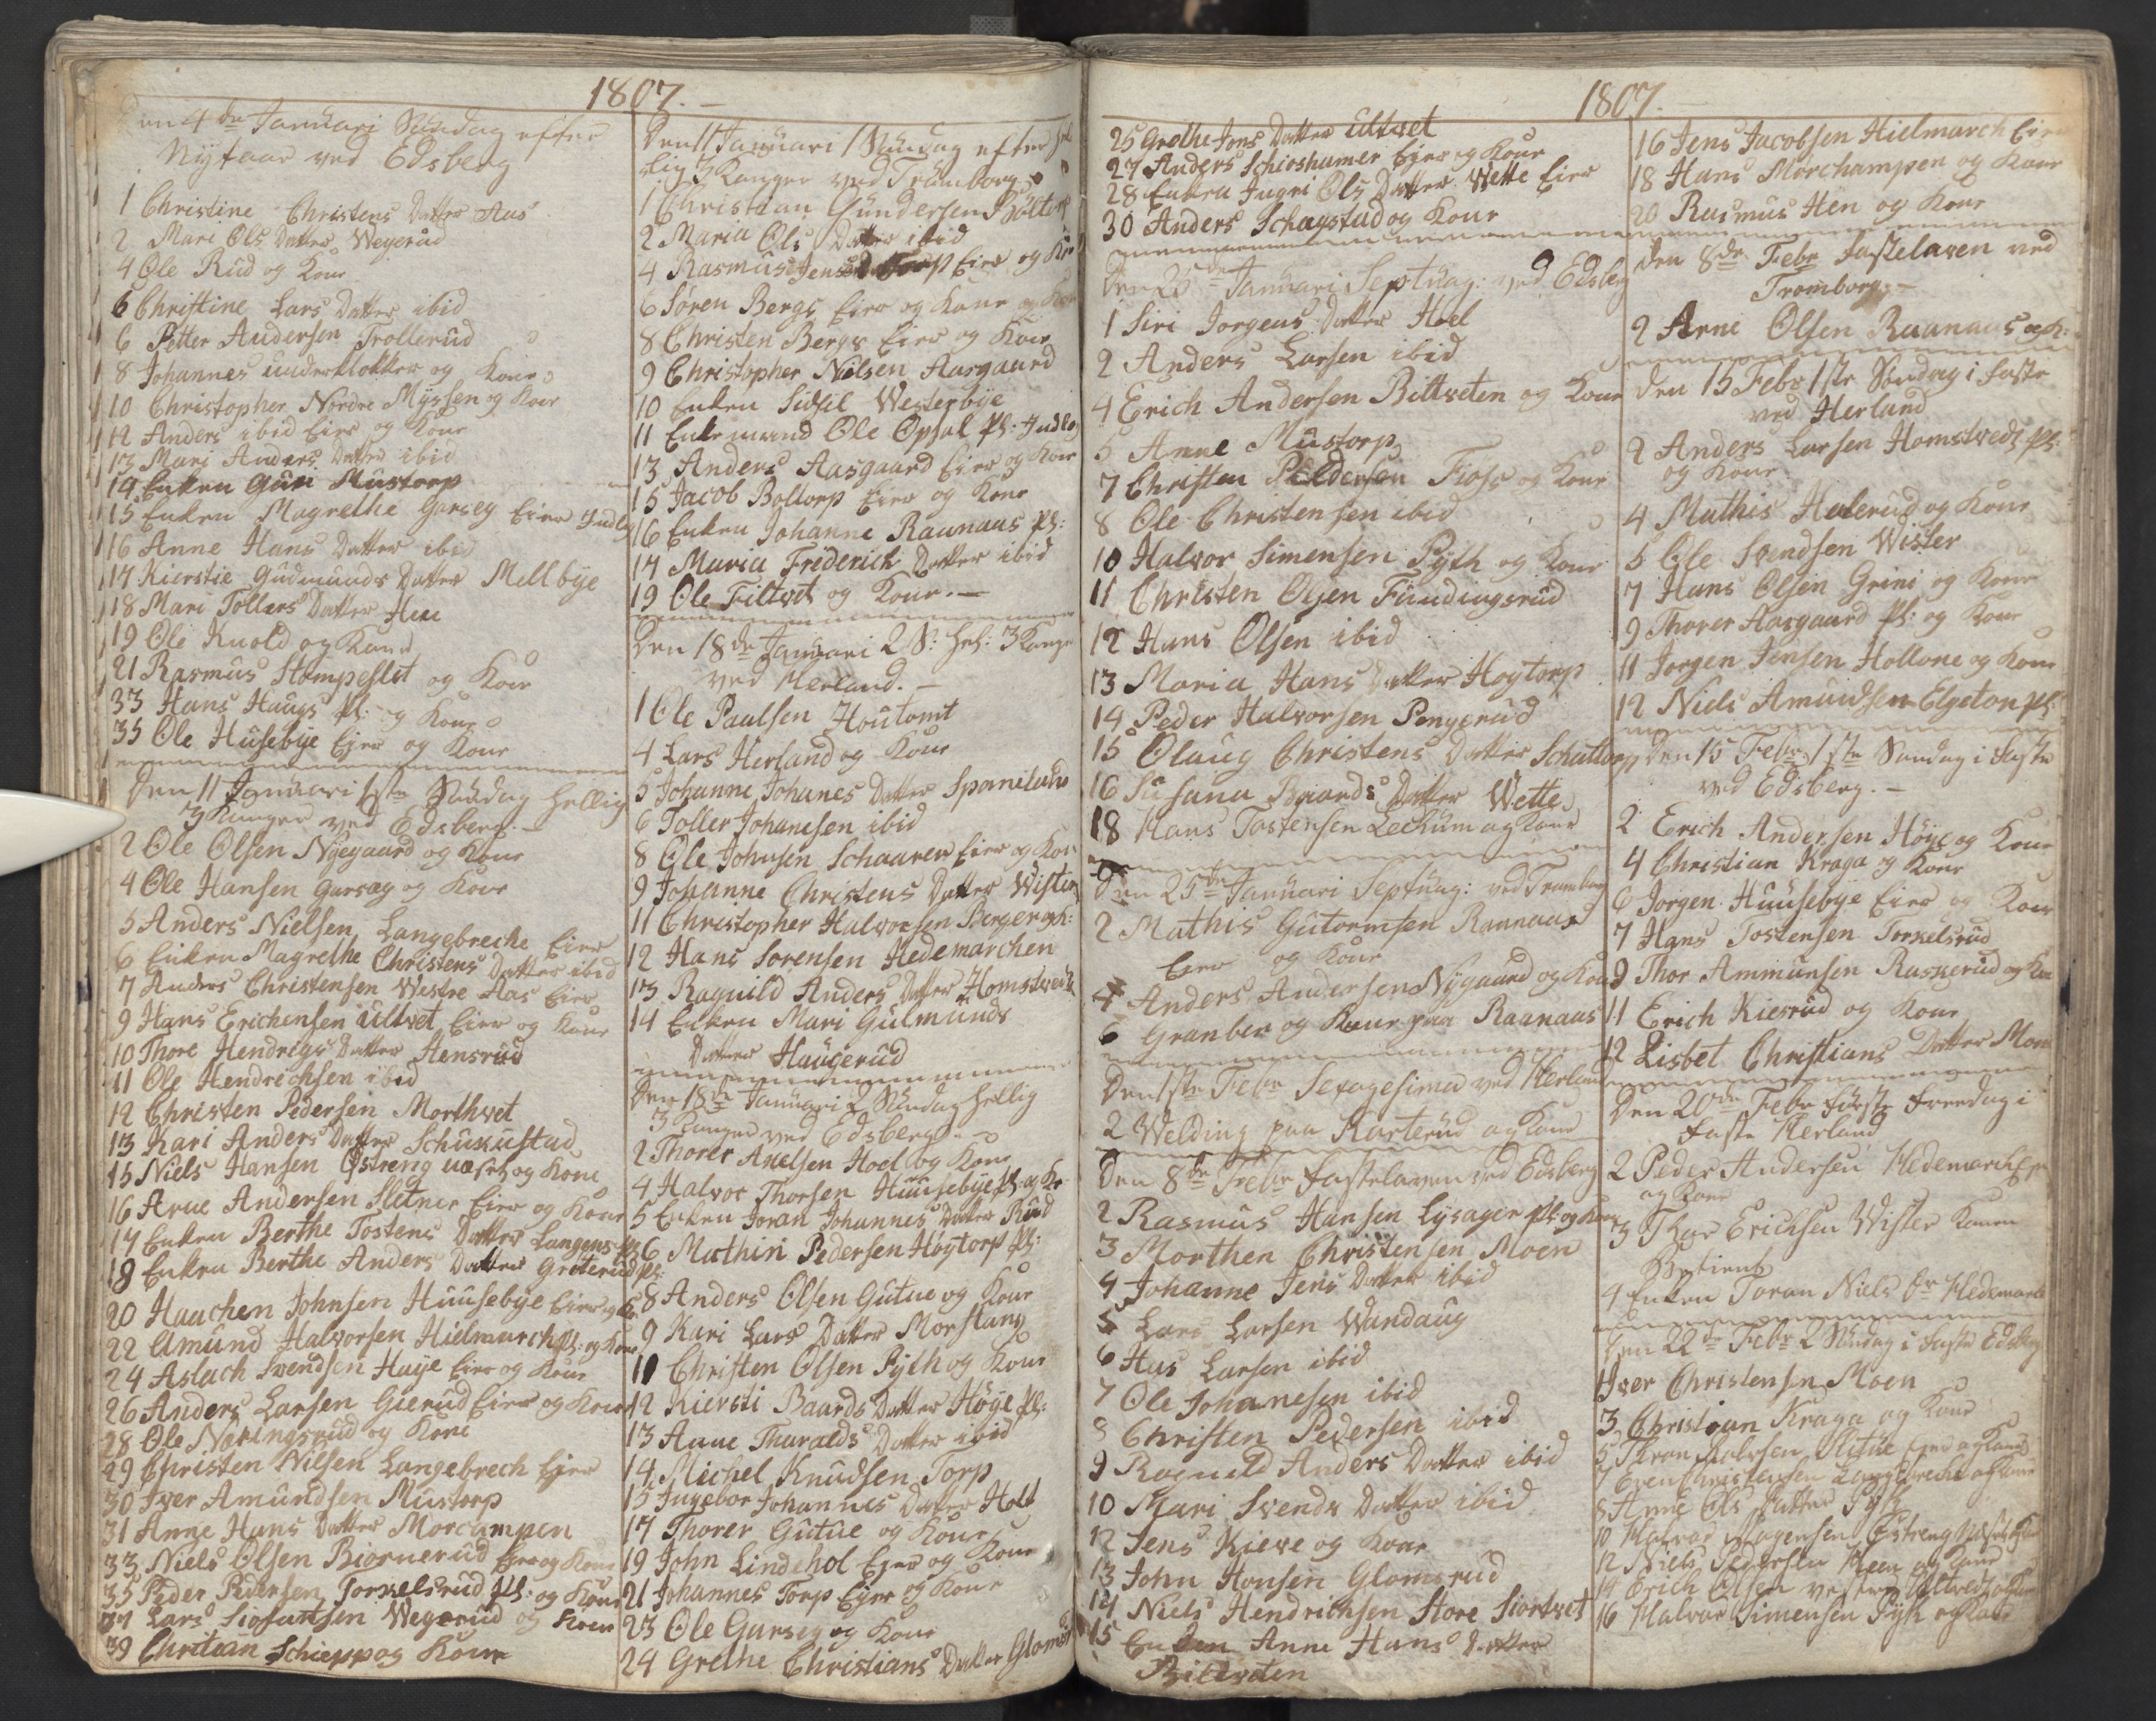 1807.
Den 4de Januari Søndag efter
Nytaar ved Edsberg
1 Christine Christens Datter Aas
2 Mari Ols Datter Wegerud
4 Ole Rud og Kone
6 Christine Lars Datter ibid
6 Petter Andersen Trollerud
8 Johannes underklokker og Kone
10 Christopher Nordre Myssen og Kone
12 Anders ibid Eier og Kone
13 Mari Anders Datter ibid
14 Enken Guri Mustorp
15 Enken Magrethe Garseg Eier Indlg
16 Anne Hans Datter ibid
17 Kierstie Gudmunds Datter Mellbye
18 Mari Tollers Datter Hen
19 Ole Knold og Kone
21 Rasmus Stompeslet og Kone
33 Hans Haugs Pl: og Kone
35 Ole Husebye Eier og Kone
Den 11 Januari 1ste Søndag hellig
3 Konger ved Edsberg.
2 Ole Olsen Nyegaard og Kone
4 Ole Hansen Garsæg og Kone
5 Anders Nielsen Langebreche Eier
6 Enken Magrethe Christens Datter ibid
7 Anders Christensen Westre Aas Eier
9 Hans Erichensen Ultvet Eier og Kone
10 Thore Hendregs Datter Hensrud
11 Ole Hendrechsen ibid
12 Christen Pedersen Morthvet
13 Kari Anders Datter Schukustad
15 Niels Hansen Østreng og Kone
16 Arne Andersen Sletner Eier og Kone
17 Enken Berthe Tostens Datter Langens Pl
18 Enken Berthe Anders Datter Gröterud Pl:
20 Haachen Johnsen Huusebye Eier og K
22 Amund Halvorsen Hielmarch Pl: og Kone
24 Aslach Svendsen Høye Eier og Kone
26 Anders Larsen Gierud Eier og Kone
28 Ole Nøkingsrud og Kone
29 Christen Nilsen Langebrech Eier
30 Iver Amundsen Mustorp
31 Anne Hans Datter Morcampen
33 Niels Olsen Biørnerud Eier og Kone
35 Peder Pedersen Torkelsrud Pl: og Kone
37 Lars Wegerud og Kone
39 Christian Schiepp og Kone
Den 11 Januari 1 Søndag efter Hel
lig 3 Konger ved Trømborg
1 Christian Gundersen Boltorp
2 Maria Ols Datter ibid
4 Rasmus Jensen Torp Eier og Ko
6 Søren Bergs Eier og Kone
8 Christen Bergs Eier og Kone
9 Christopher Nielsen Aasgaard
10 Enken Sidsel Westerbye
11 Enkemand Ole Opsal Pl: Indlg
13 Anders Aasgaard Eier og Kone
15 Jacob Boltorp Eier og Kone
16 Enken Johanne Raanaas Pl:
17 Maria Friderich Datter ibid
19 Ole Filtvet og Kone.
Den 18de Januari 2 S: Hel: 3 Konger
ved Herland.
1 Ole Paulsen Houtomt
4 Lars Herland og Kone
5 Johanne Johanes Datter Sponelund
6 Toller Johanesen ibid
8 Ole Johnsen Schaaren Eier og Kone
9 Johanne Christens Datter Wister
11 Christopher Halvorsen Berger og K:
12 Hans Sorensen Hedemarchen
13 Ragnild Anders Datter Homstvedt
14 Enken Mari Gulmunds
Datter Haugerud
Den 18de Januari 2 Søndag hellig
3 Konger ved Edsberg.
2 Thorer Axelsen Hoel og Kone
4 Halvor Thorsen Huusebye Pl: og Ko
5 Enken Joran Johannes Datter Rud
6 Mathiri Pedersen Høytorp Pl:
8 Anders Olsen Gutue og Kone
9 Kari Lars Datter Morstang
11 Christen Olsen Fyth og Kone
12 Kiersti Baards Datter Höge Pl:
13 Anne Thoralds Datter ibid
14 Michel Knudsen Torp
15 Ingebor Johannes Datter Holt
17 Thorer Gutue og Kone
19 John Lindehol Eier og Kone
21 Johannes Torp Eier og Kone
23 Ole Garseg og Kone
24 Grethe Christians Datter Glomsr
1807.
25 Grethe Jens Datter Ultvet
27 Anders Schioshamer Eier og Kone
28 Enken Ingri Ols Datter Wette Eier
30 Anders Schagstad og Kone
Den 25de Januari Septuag: ved Edsberg
1 Siri Jorgens Datter Hoel
2 Anders Larsen ibid
4 Erich Andersen Bittveten og Kone
5 Anne Mustorp
7 Christen Pedersen Fiøss og Kone
8 Ole Christensen ibid
10 Halvor Simensen Pyth og Kone
11 Christen Olsen Fundingsrud
12 Hans Olsen ibid
13 Maria Hans Datter Høytorp
14 Peder Halvorsen Pengerud
15 Olaug Christens Datter Schuttorp
16 Susana Baards Datter Wette
18 Hans Tostensen Leckum og Kone
Den 25de Januari Septuag: ved Tromborg
2 Mathis Gutormsen Raanaas
Eier og Kone
4 Anders Andersen Nygaard og Kone
6 Granber og Kone paa Raanaas
Den 1ste Febr Sexagesima ved Herland
2 Welding paa Karterud og Kone
Den 8de Febr Fastelaven ved Edsberg
2 Rasmus Hansen Lysager Pl: og Kone
3 Morthen Christensen Moen
4 Johanne Jens Datter ibid
5 Lars Larsen Wandaug
6 Has Larsen ibid
7 Ole Johanesen ibid
8 Christen Pedersen ibid
9 Ragnild Anders Datter ibid
10 Mari Svends Datter ibid
12 Jens Kieve og Kone
13 John Honsen Glomsrud
14 Niels Hendrichsen Store Siortvet
15 Enken Anne Hans Datter
Bitveten
16 Jens Jacobsen Hielmarch Eier
18 Hans Morchampen og Kone
20 Rasmus Hen og Kone
Den 8de Febr Fastelaven ved
Tromborg.
2 Arne Olsen Raanaas og K:
Den 15 Febr 1ste Søndag i Faste
ved Herland
2 Anders Larsen Homstvedt Pl:
og Kone
4 Mathis Halerud og Kone
5 Ole Svendsen Wister
7 Hans Olsen Grini og Kone
9 Thorer Aasgaard Pl: og Kone
11 Jorgen Jensen Hollone og Kone
12 Niels Amundsen Elgeton Pl:
Den 15 Febr 1ste Søndag i Faste
ved Edsberg.
2 Erich Andersen Höye og Kone
4 Christian Kraga og Kone
6 Jorgen Huusebye Eier og Kone
7 Hans Tostensen Torkelsrud
9 Thor Ammunsen Raskerud og Kone
11 Erich Kiesrud og Kone
12 Lisbet Christians Datter Moen
Den 20de Febr Første Freedag i
Faste Herland
2 Peder Andersen Hedemarch
og Kone
3 Thor Erichsen Wister Konen
4 Enken Joran Niels Dr Hedemark
Den 22de Febr 2 Søndag i Faste Edsberg
1 Iver Christensen Moen
3 Christian Kraga og Kone
5 Slitue Eier og Kone
7 Even Christensen Langebreche og Kone
8 Anne Ols Datter Pyth
10 Halvor Østreng
12 Niels Pedersen Heen og Kone
14 Erich Olsen vestre Ultvedt og Kone
16 Halvor Simensen Pyth og Kone